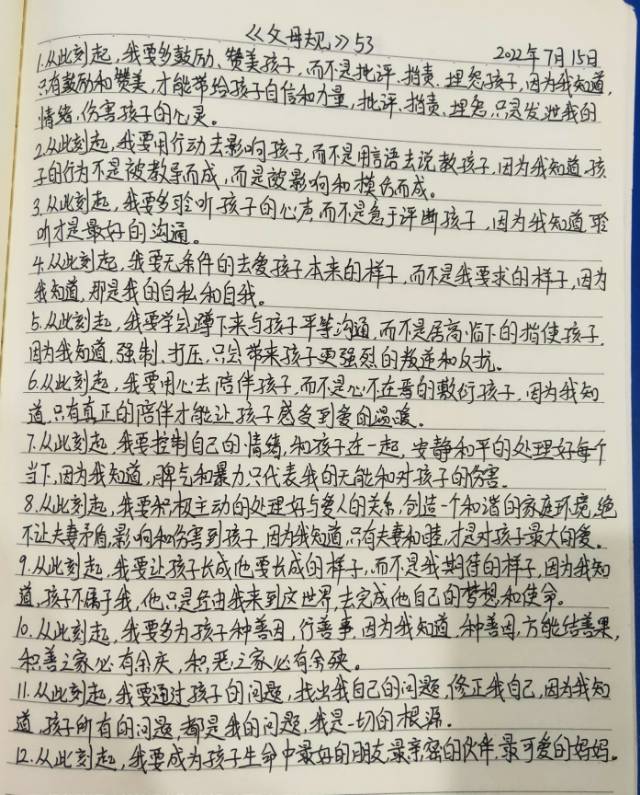 《父母规》53
2022年7月15日
1.从此刻起,我要多鼓励、赞美孩子,而不是批评、指责、埋怨孩子,因为我知道,
只有鼓励和赞美,才能带给孩子自信和力量,批评、指责、埋怨,只是发泄我的
情绪,伤害孩子的心灵。
2.从此刻起,我要用行动去影响孩子,而不是用言语去说教孩子,因为我知道,孩
子的行为不是被教导而成,而是被影响和模仿而成。
3.从此刻起,我要多聆听孩子的心声,而不是急于评断孩子,因为我知道,聆
听才是最好的沟通。
4.从此刻起,我要无条件的去爱孩子本来的样子,而不是我要求的样子,因为
我知道,那是我的自私和自我。
5.从此刻起,我要学会蹲下来与孩子平等沟通,而不是居高临下的指使孩子,
因为我知道,强制、打压,只会带来孩子更强烈的叛逆和反抗。
6.从此刻起,我要用心去陪伴孩子,而不是心不在焉的敷衍孩子,因为我知
道,只有真正的陪伴才能让孩子感受到爱的温暖。
7.从此刻起,我要控制自己的情绪,和孩子在一起,安静和平的处理好每个
当下,因为我知道,脾气和暴力只代表我的无能和对孩子的伤害。
8.从此刻起,我要积极主动的处理好与爱人的关系,创造一个和谐的家庭环境,绝
不让夫妻矛盾,影响和伤害到孩子,因为我知道,只有夫妻和睦,才是对孩子最大的爱。
9.从此刻起,我要让孩子长成他要长成的样子,而不是我期待的样子,因为我知
道,孩子不属于我,他只是经由我来到这世界,去完成他自己的梦想和使命。
10.从此刻起,我要多为孩子种善因,行善事,因为我知道,种善因,方能结善果,
积善之家必有余庆,积恶之家必有余殃。
11.从此刻起,我要通过孩子的问题,找出我自己的问题,修正我自己,因为我知
道,孩子所有的问题,都是我的问题,我是一切的根源。
12.从此刻起,我要成为孩子生命中最好的朋友,最亲密的伙伴,最可爱的妈妈。